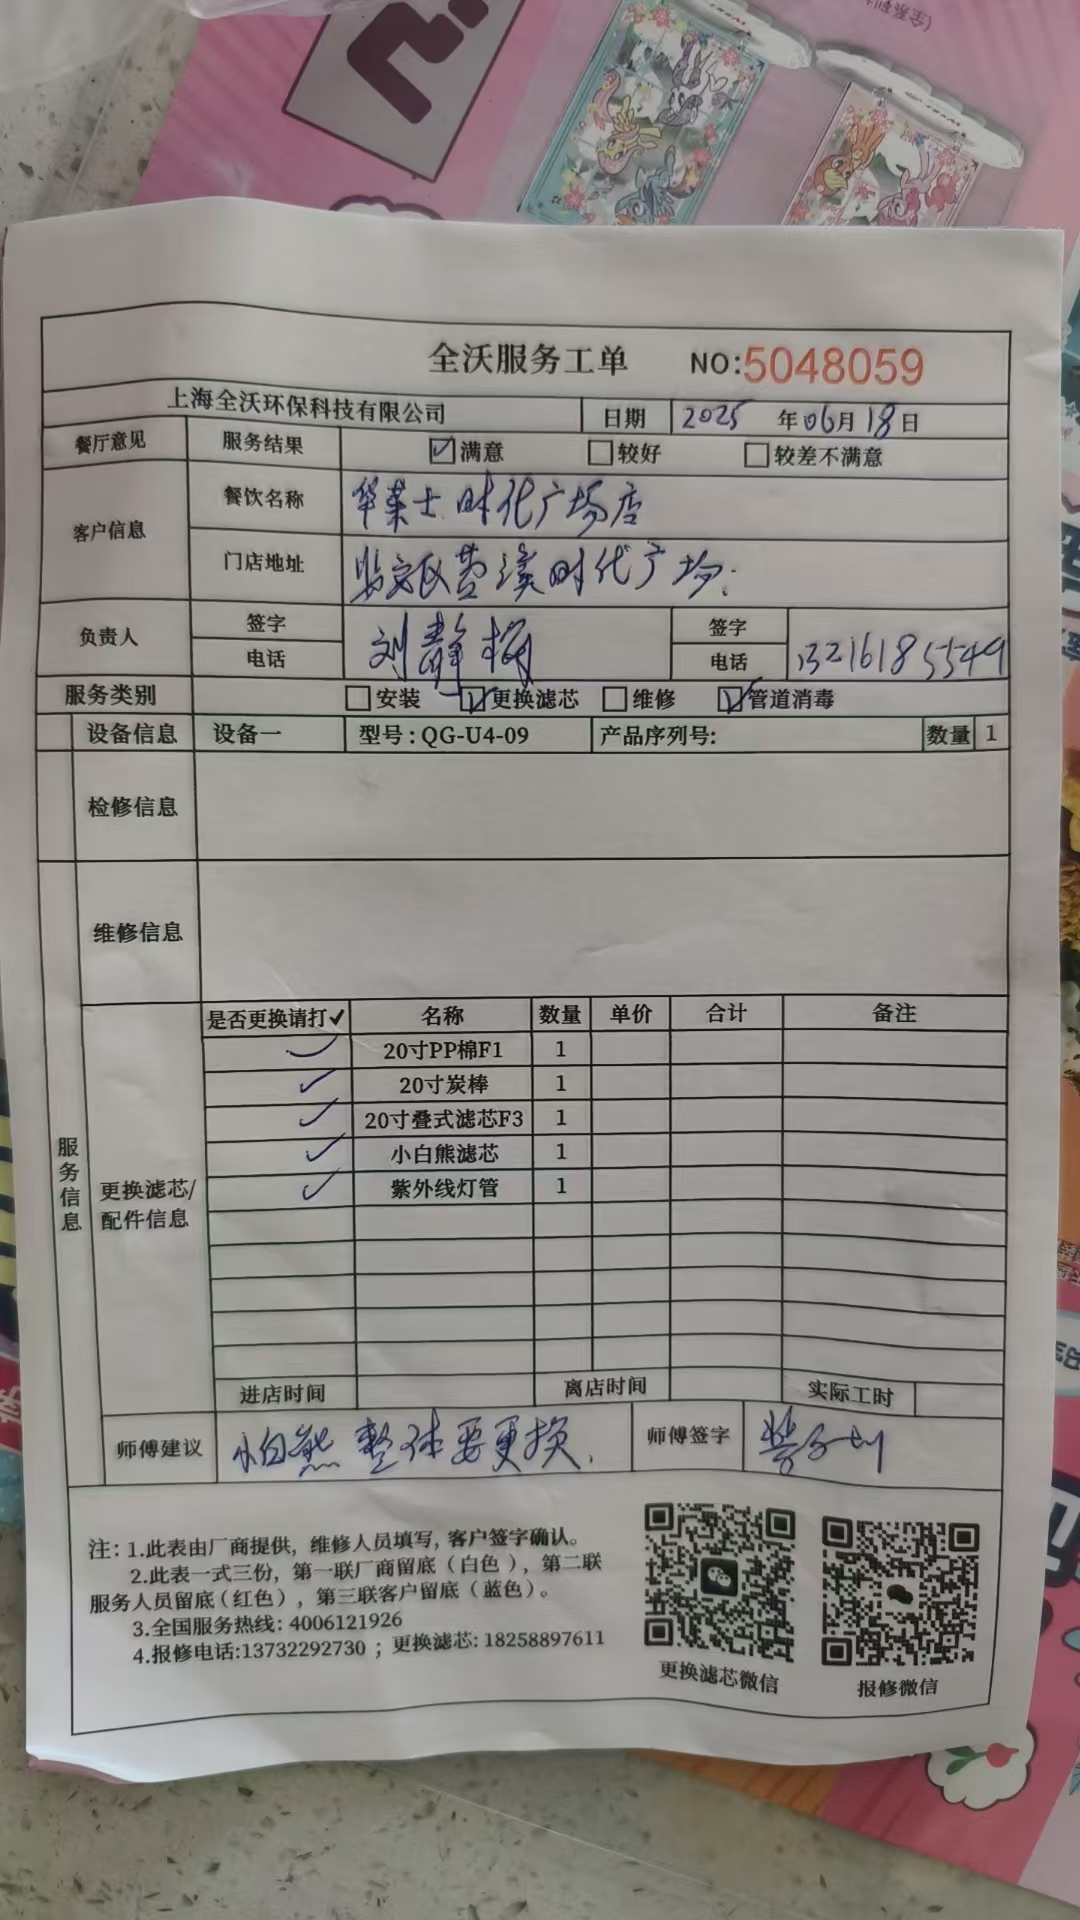 全沃服务工单 NO:5048059
上海全沃环保科技有限公司 日期 2025 年06月18日
餐厅意见 服务结果 ☑满意 ☐较好 ☐较差不满意
客户信息 餐饮名称 华莱士 时代广场店
门店地址 时代广场.
负责人 签字 电话 刘静梅 签字 电话 13216185549
服务类别 ☐安装 ☑更换滤芯 ☐维修 ☑管道消毒
设备信息 设备一 型号:QG-U4-09 产品序列号: 数量 1
检修信息
维修信息
服务信息
更换滤芯/配件信息
是否更换请打✓ 名称 数量 单价 合计 备注
✓ 20寸PP棉F1 1
✓ 20寸炭棒 1
✓ 20寸叠式滤芯F3 1
✓ 小白熊滤芯 1
✓ 紫外线灯管 1
进店时间 离店时间 实际工时
师傅建议 小白熊 整体要更换. 师傅签字
注: 1.此表由厂商提供，维修人员填写, 客户签字确认。
2.此表一式三份，第一联厂商留底（白色），第二联
服务人员留底(红色)，第三联客户留底（蓝色）。
3.全国服务热线: 4006121926
4.报修电话:13732292730 ；更换滤芯: 18258897611
更换滤芯微信 报修微信